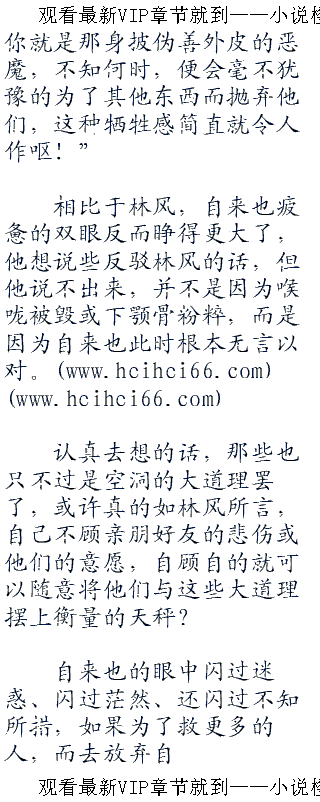 观看最新VIP章节就到——小说
你就是那身披伪善外皮的恶
魔，不知何时，便会毫不犹
豫的为了其他东西而抛弃他
们，这种牺牲感简直就令人
作呕！”
相比于林风，自来也疲
惫的双眼反而睁得更大了，
他想说些反驳林风的话，但
他说不出来，并不是因为喉
咙被毁或下颚骨粉粹，而是
因为自来也此时根本无言以
对。(www.hcihci66.com)
(www.hcihci66.com)
认真去想的话，那些也
只不过是空洞的大道理罢
了，或许真的如林风所言，
自己不顾亲朋好友的悲伤或
他们的意愿，自顾自的就可
以随意将他们与这些大道理
摆上衡量的天秤？
自来也的眼中闪过迷
惑、闪过茫然、还闪过不知
所措，如果为了救更多的
人，而去放弃自
观看最新VIP章节就到——小说